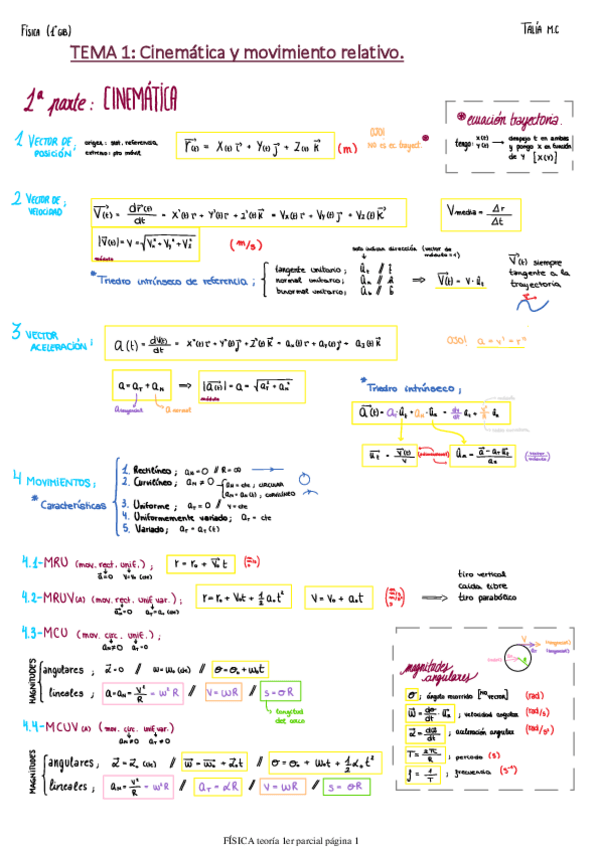 FÍSICA (1º GIB)
TALÍA M.C
TEMA 1: Cinemática y movimiento relativo.
1ª parte: CINEMÁTICA
* ecuación trayectoria.
tengo: x(t) y(t) → despejo t en ambas y pongo x en función de y [x(y)]
1 VECTOR DE POSICIÓN:
origen: sist. referencia
extremo: pto móvil
r⃗(t) = x(t) i⃗ + y(t) j⃗ + z(t) k⃗ (m)
OJO! no es ec trayect. *
2 VECTOR DE VELOCIDAD:
V⃗(t) = dr⃗(t)/dt = x'(t) i⃗ + y'(t) j⃗ + z'(t) k⃗ = Vx(t) i⃗ + Vy(t) j⃗ + Vz(t) k⃗
Vmedia = Δr/Δt
|V⃗(t)| = V = √(Vx² + Vy² + Vz²) (m/s)
módulo
solo indican dirección (vector de módulo = 1)
* Triedro intrínseco de referencia;
tangente unitario;
normal unitario;
binormal unitario;
⇒ V⃗(t) = V · u⃗t
V⃗(t) siempre tangente a la trayectoria
3 VECTOR ACELERACIÓN:
OJO! a = v' = r''
a = aT + aN ⇒ |a⃗(t)| = a = √(aT² + aN²)
a tangencial
a normal
módulo
* Triedro intrínseco;
4 MOVIMIENTOS;
* Características
1. Rectilíneo; aN = 0 // R = ∞
2. Curvilíneo; aN ≠ 0
aN = cte; CIRCULAR
aN = aN(t); CURVILÍNEO
3. Uniforme; aT = 0 // V = cte
4. Uniformemente variado; aT = cte
5. Variado; aT = aT(t)
4.1-MRU (mov. rect. unif.); r = r₀ + V₀t (m/s)
4.2-MRUV(A) (mov. rect. unif. var.); r = r₀ + V₀t + 1/2 a₀t² V = V₀ + a₀t
tiro vertical
caída libre
tiro parabólico
4.3-MCU (mov. circ. unif.);
aN≠0 aT=0
MAGNITUDES
angulares; α⃗ = 0 // ω = ω₀ (cte) // σ = σ₀ + ω₀t
lineales; a = aN = V²/R = ω²R // V = ωR // s = σR
longitud del arco
4.4-MCUV(A) (mov. circ. unif. var)
aN≠0 aT≠0
MAGNITUDES
angulares; α⃗ = α⃗₀ (cte) // ω⃗ = ω⃗₀ + α⃗₀t // σ = σ₀ + ω₀t + 1/2 α₀t²
lineales; aN = V²/R = ω²R // aT = αR // V = ωR // s = σR
magnitudes angulares
σ; ángulo recorrido [no vector] (rad)
ω⃗ = dσ/dt · u⃗; velocidad angular (rad/s)
α⃗ = dω⃗/dt; aceleración angular (rad/s²)
T = 2πR/V; periodo (s)
f = 1/T; frecuencia (s⁻¹)
FÍSICA teoría 1er parcial página 1